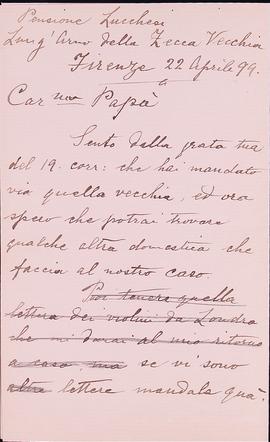 Pensione Lucchesi
Lung' Arno della Zecca Vecchia
Firenze 22 Aprile 99.
Car mo Papà
Sento dalla grata tua
del 19. corr: che hai mandato
via quella vecchia, ed ora
spero che potrai trovare
qualche altra domestica che
faccia al nostro caso.
Puoi tenere quella
lettera dei violini da Londra
che mi darai al mio ritorno
a casa, ma se vi sono
altre lettere mandale quà.